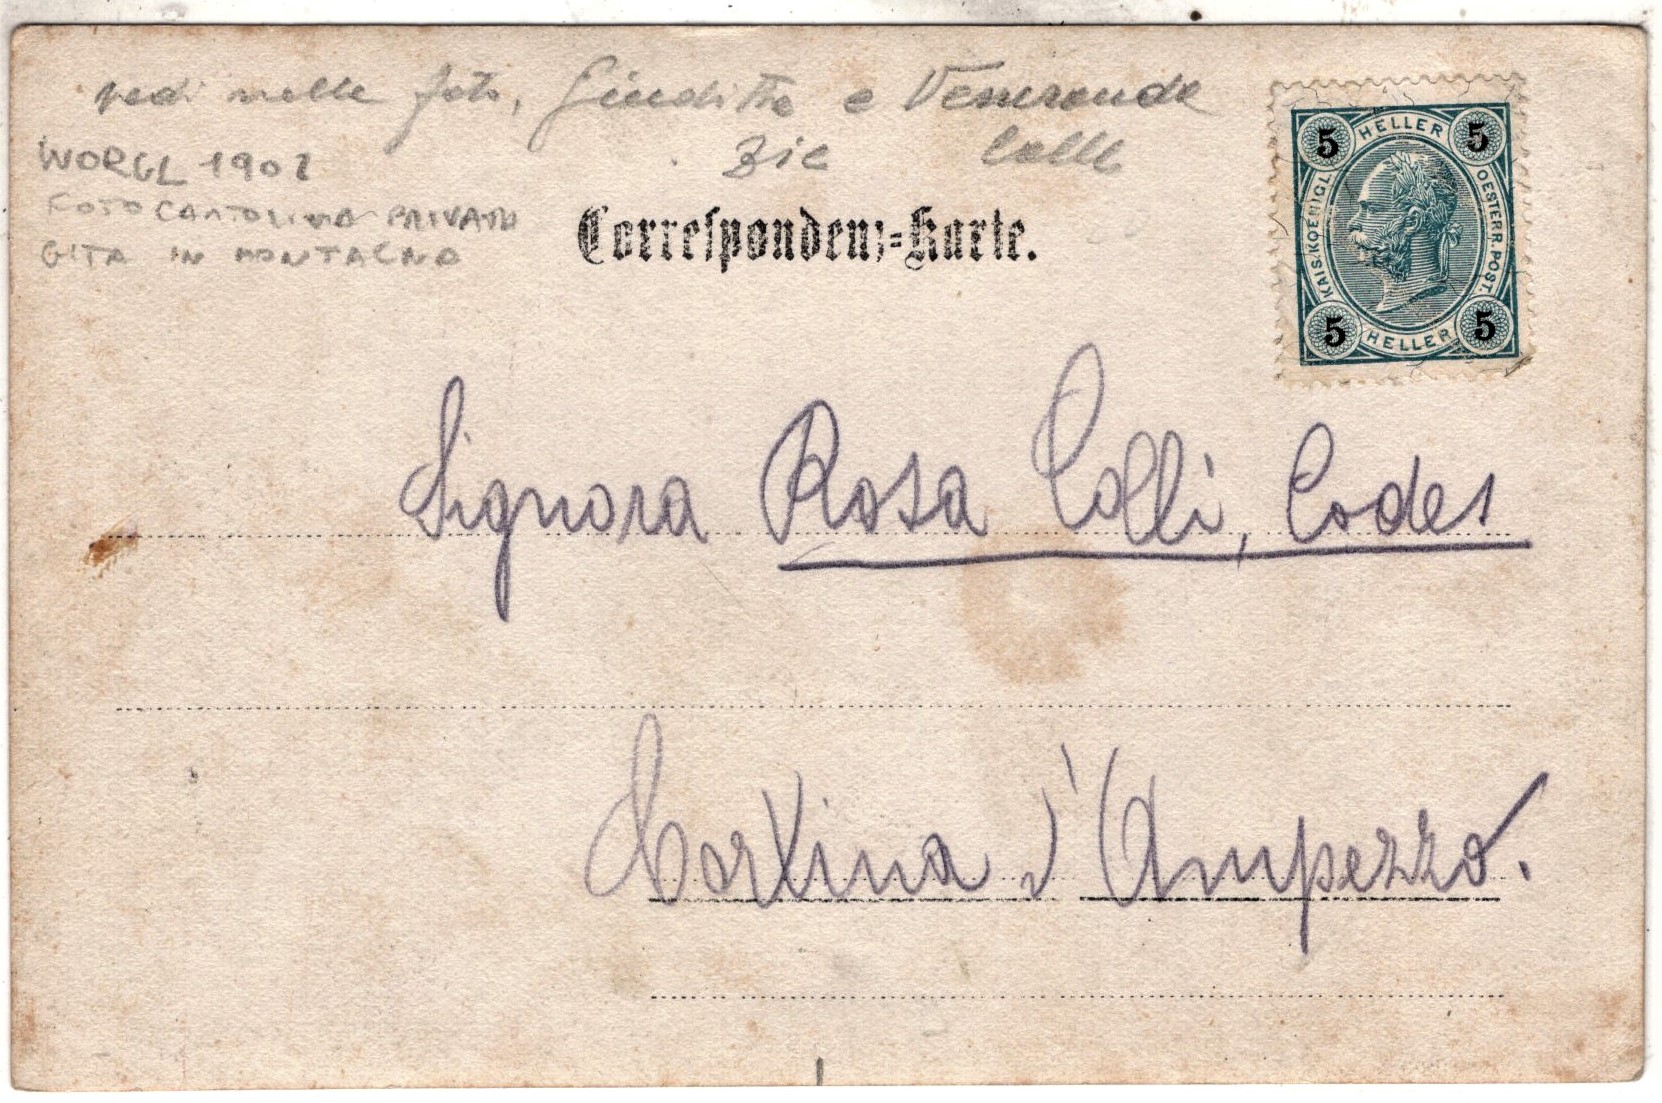 vedi nelle foto, Giuditta e Veneranda
Zie Colli
WORGL 1902
FOTOCARTOLINA PRIVATA
GITA IN MONTAGNA
Correspondenz-Karte.
5 HELLER 5
KAIS. KOENIGL. OESTERR. POST.
5 HELLER 5
Signora Rosa Colli, Codes
Cortina d'Ampezzo.